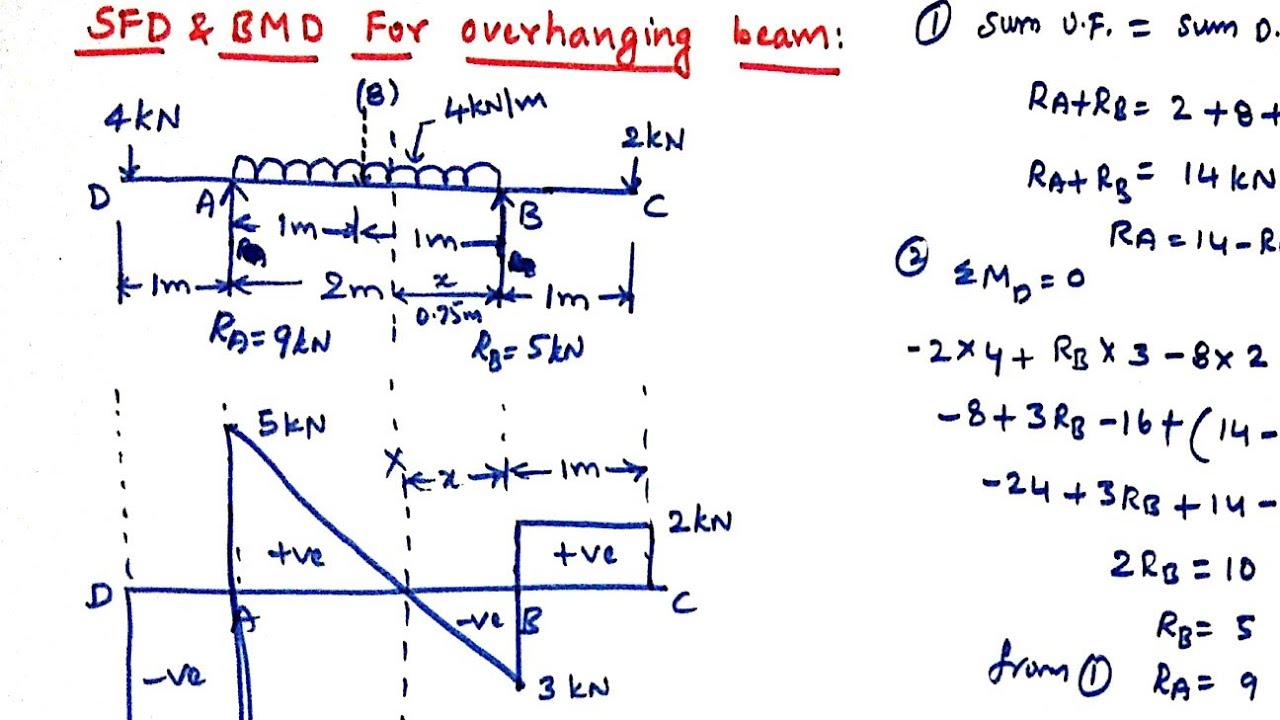 SFD & BMD For overhanging beam:
(8)
4kN
4kN/m
2kN
D
A
B
C
1m
1m
1m
2m
x
0.75m
1m
RA=9kN
RB=5kN
5kN
X
x
1m
2kN
+ve
+ve
D
A
-ve
B
C
-ve
3kN
① Sum U.F. = Sum D.
RA+RB= 2+8+
RA+RB= 14kN
RA=14-R
② ΣMD=0
-2×4+ RB×3-8×2
-8+3RB-16+(14-
-24+3RB+14-
2RB=10
RB= 5
from ① RA= 9